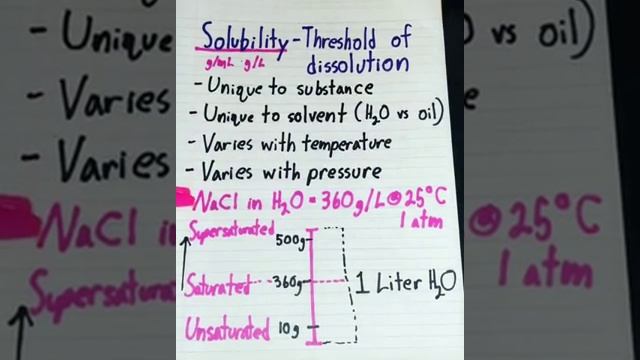 Solubility - Threshold of
g/mL g/L dissolution
- Unique to substance
- Unique to solvent (H₂O vs oil)
- Varies with temperature
- Varies with pressure
NaCl in H₂O = 360g/L @ 25°C
1 atm
Supersaturated 500g
Saturated 360g 1 Liter H₂O
Unsaturated 10g